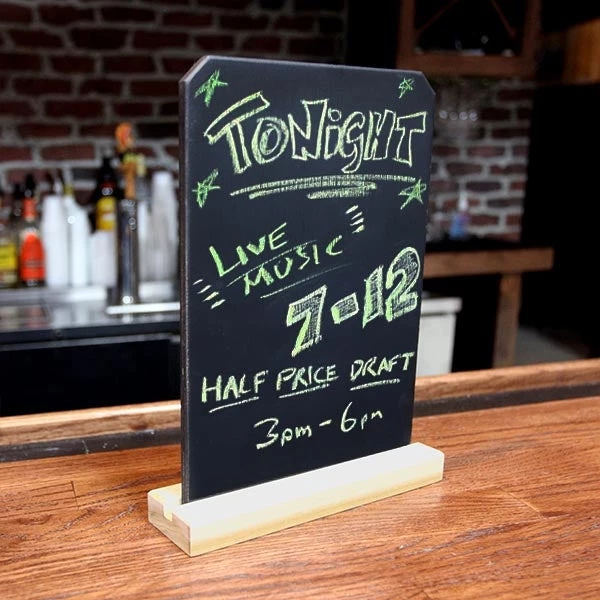 TONiGHT
LIVE
MUSIC
7-12
HALF PRICE DRAFT
3pm - 6pm